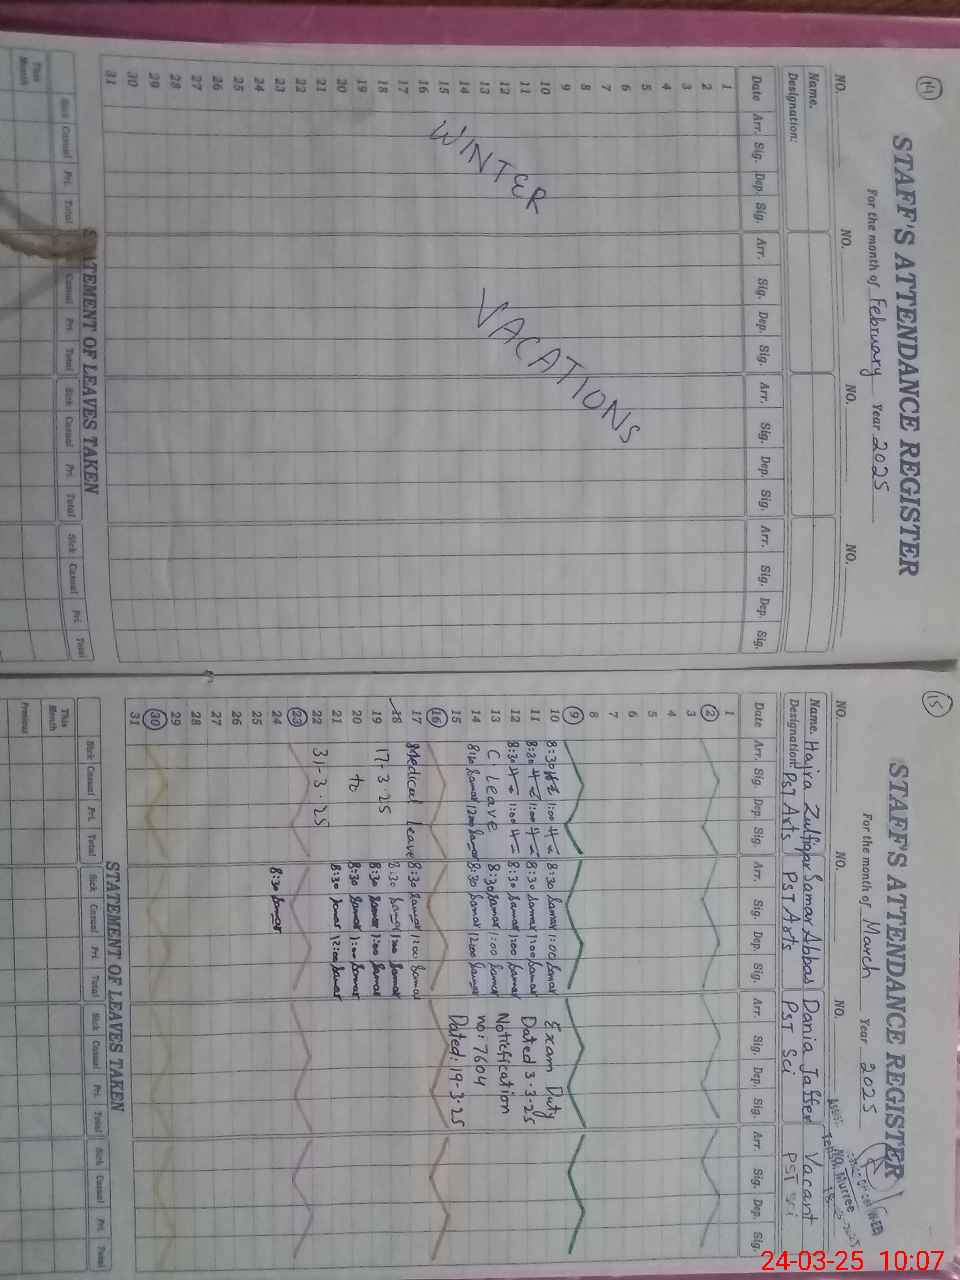 14
STAFF'S ATTENDANCE REGISTER
For the month of February Year 2025
NO. NO. NO. NO.
Name.
Designation:
Date Arr. Sig. Dep. Sig. Arr. Sig. Dep. Sig. Arr. Sig. Dep. Sig. Arr. Sig. Dep. Sig.
1
2
3
4
5
6
7
8
9
10
11
12
13
14
15
16
17
18
19
20
21
22
23
24
25
26
27
28
29
30
31
WINTER
VACATIONS
STATEMENT OF LEAVES TAKEN
Sick Casual Pri. Total Casual Pri. Total Sick Casual Pri. Total Sick Casual Pri. Total
This Month
15
STAFF'S ATTENDANCE REGISTER
For the month of March Year 2025
NO. NO. NO. NO. Murree
Name. Hajra Zulfiqar Samar Abbas Dania Jaffer Vacant
Designation PST Arts PST Arts PST Sci PST Sci
Date Arr. Sig. Dep. Sig. Arr. Sig. Dep. Sig. Arr. Sig. Dep. Sig. Arr. Sig. Dep. Sig.
1
2
3
4
5
6
7
8
9
10 8:30 1:00 8:30 Samar 1:00 Samar Exam Duty
11 8:30 1:00 8:30 Samar 1:00 Samar Dated 3-3-25
12 8:30 1:00 8:30 Samar 1:00 Samar Notification
13 C Leave 8:30 Samar 1:00 Samar no: 7604
14 8:30 Samar 12:00 Samar 8:30 Samar 12:00 Samar Dated: 19-3-25
15
16
17 Medical leave 8:30 Samar 1:00 Samar
18 8:30 Samar 1:00 Samar
19 17-3-25 8:30 Samar 1:00 Samar
20 to 8:30 Samar 1:00 Samar
21 8:30 Samar 12:00 Samar
22 31-3-25
23
24 8:30 Samar
25
26
27
28
29
30
31
STATEMENT OF LEAVES TAKEN
Sick Casual Pri. Total Sick Casual Pri. Total Sick Casual Pri. Total Sick Casual Pri. Total
This Month
Previous
24-03-25 10:07